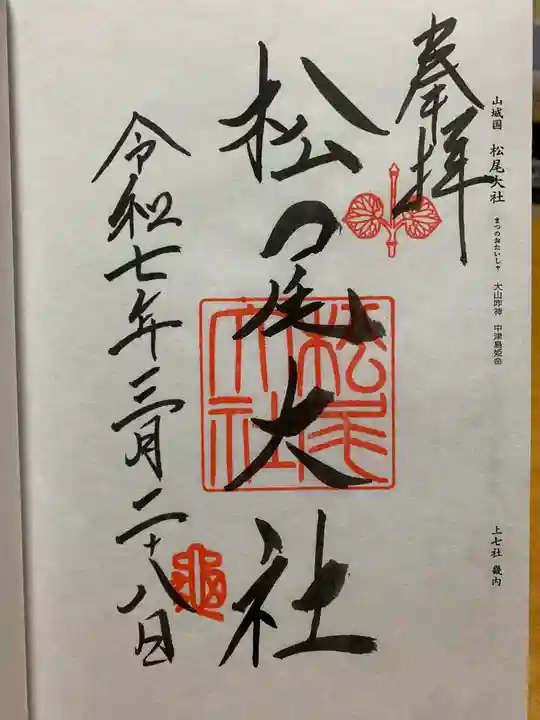 山城国　松尾大社　まつのおたいしゃ　大山咋神　中津島姫命
上七社　畿内
奉拝
松尾大社
松の尾大社
令和七年三月二十八日
亀